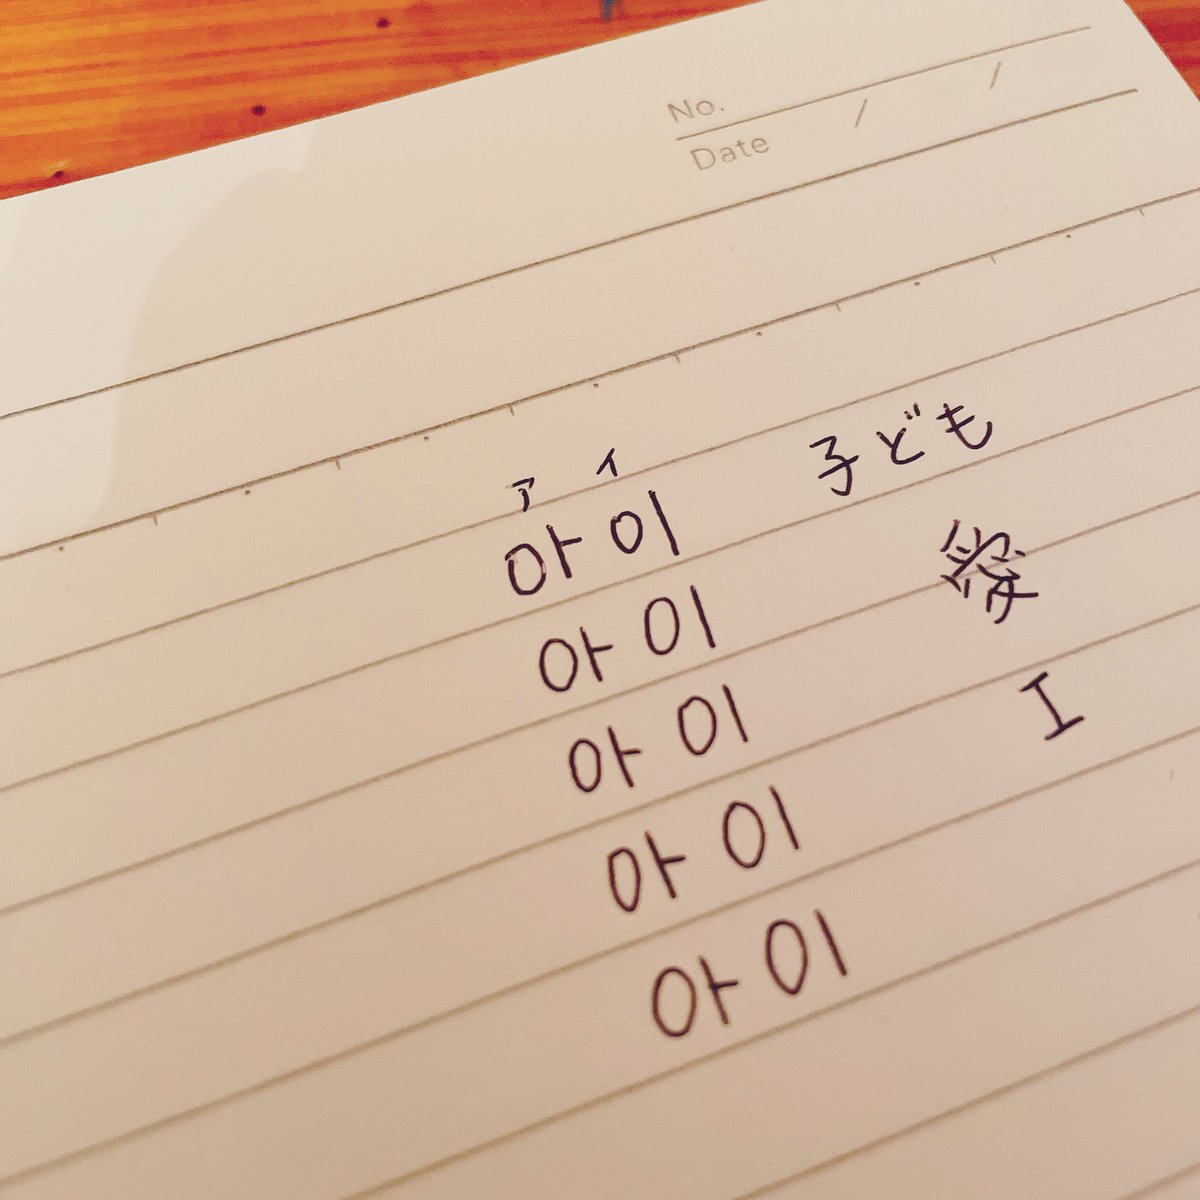 No.
Date / /
ア イ
아이 子ども
아이 愛
아이 I
아이
아이